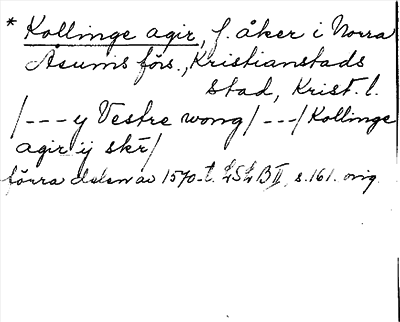 * Kollinge agir, f. åker i Norra
Åsums förs., Kristianstads
stad, Krist. l.
/--- y Vestre wong/---/Kollinge
agir ij skr/
förra delen av 1570-t. LSLB II, s. 161. orig.